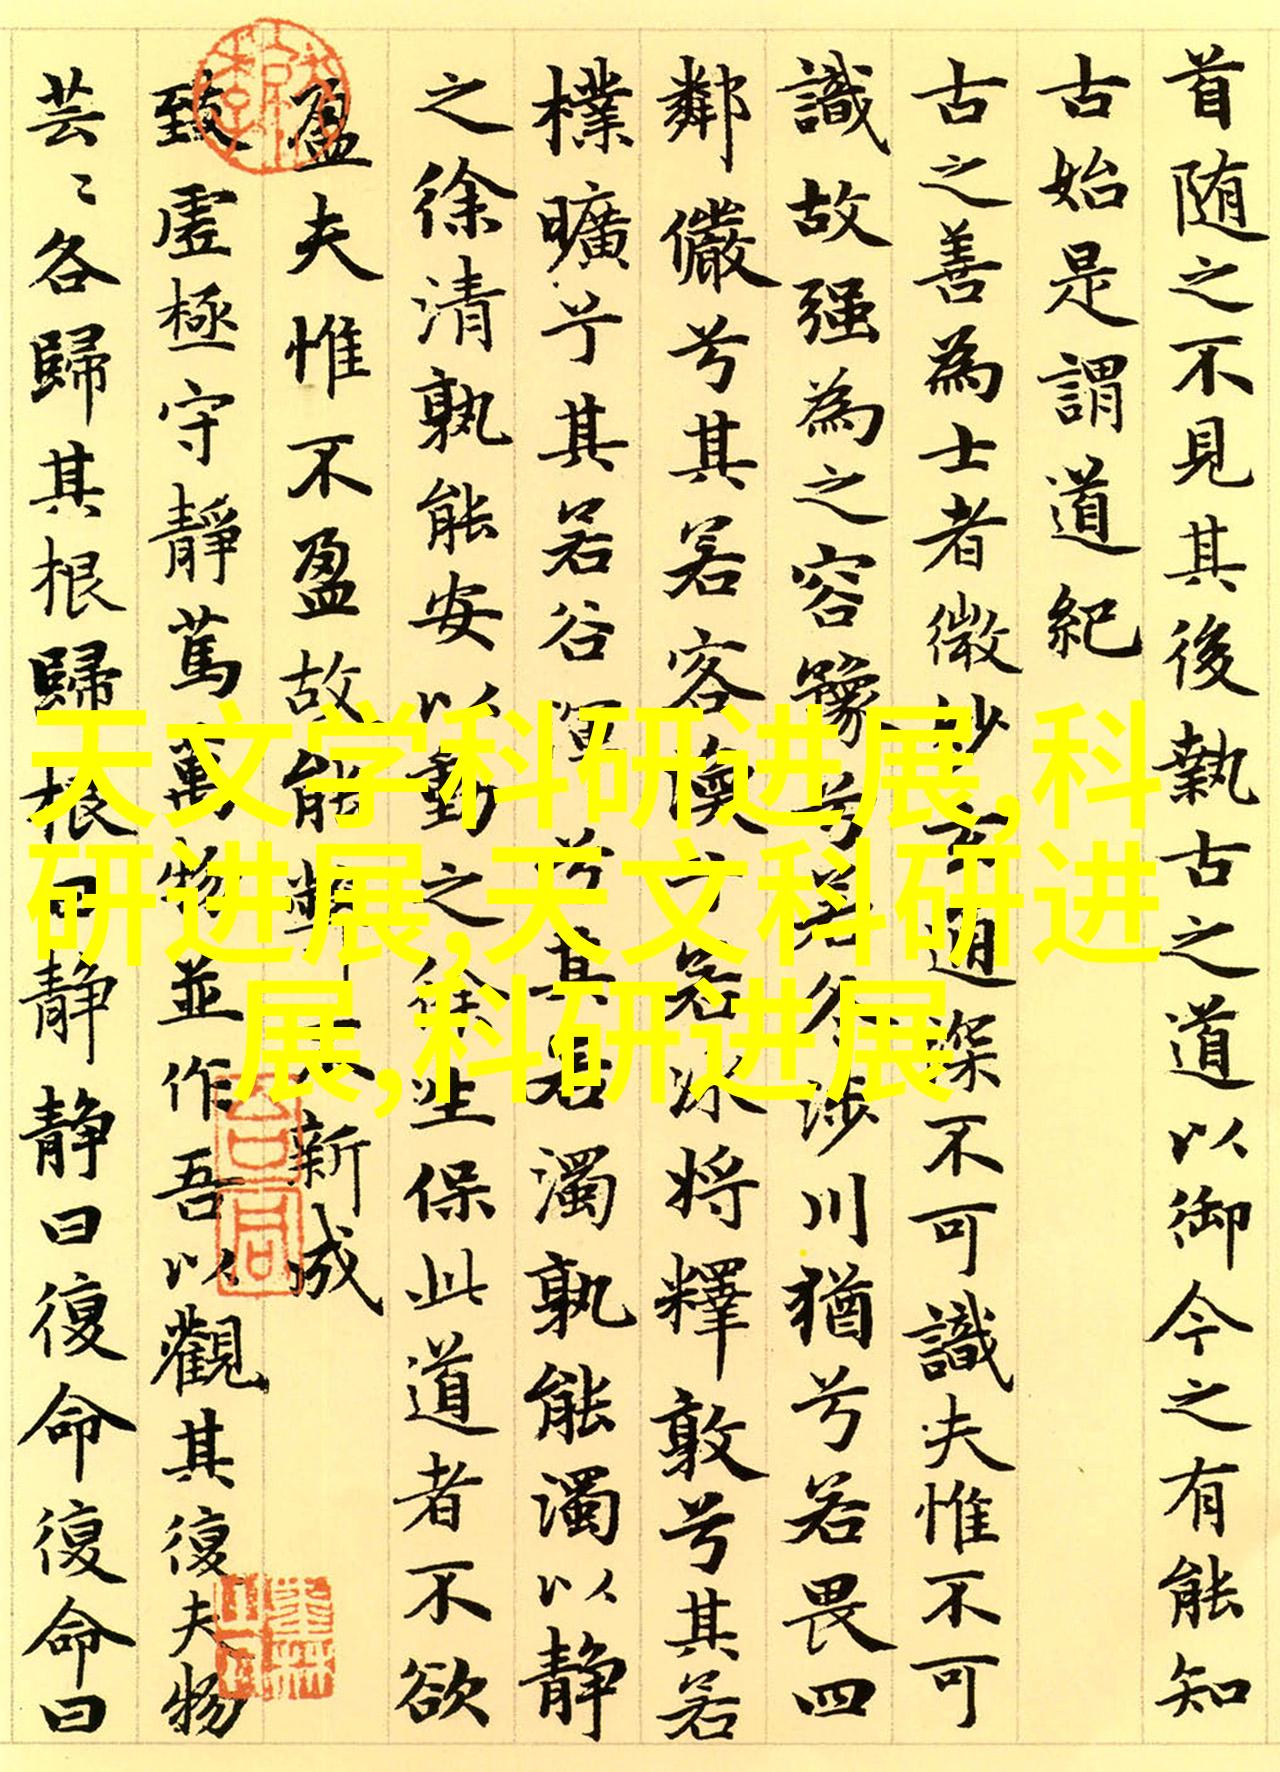 首随之不見其後執古之道以御今之有能知
古始是謂道紀
古之善為士者微妙玄通深不可識夫惟不可
識故强為之容豫兮若冬涉川猶兮若畏四
鄰儼兮其若客渙兮若冰将釋敦兮其若
樸曠兮其若谷渾兮其若濁孰能濁以静
之徐清孰能安以動之徐生保此道者不欲
盈夫惟不盈故能弊不新成
致虛極守靜篤萬物並作吾以觀其復夫物
芸〻各歸其根歸根曰静静曰復命復命曰
天文学科研进展,科
研进展,天文科研进
展,科研进展